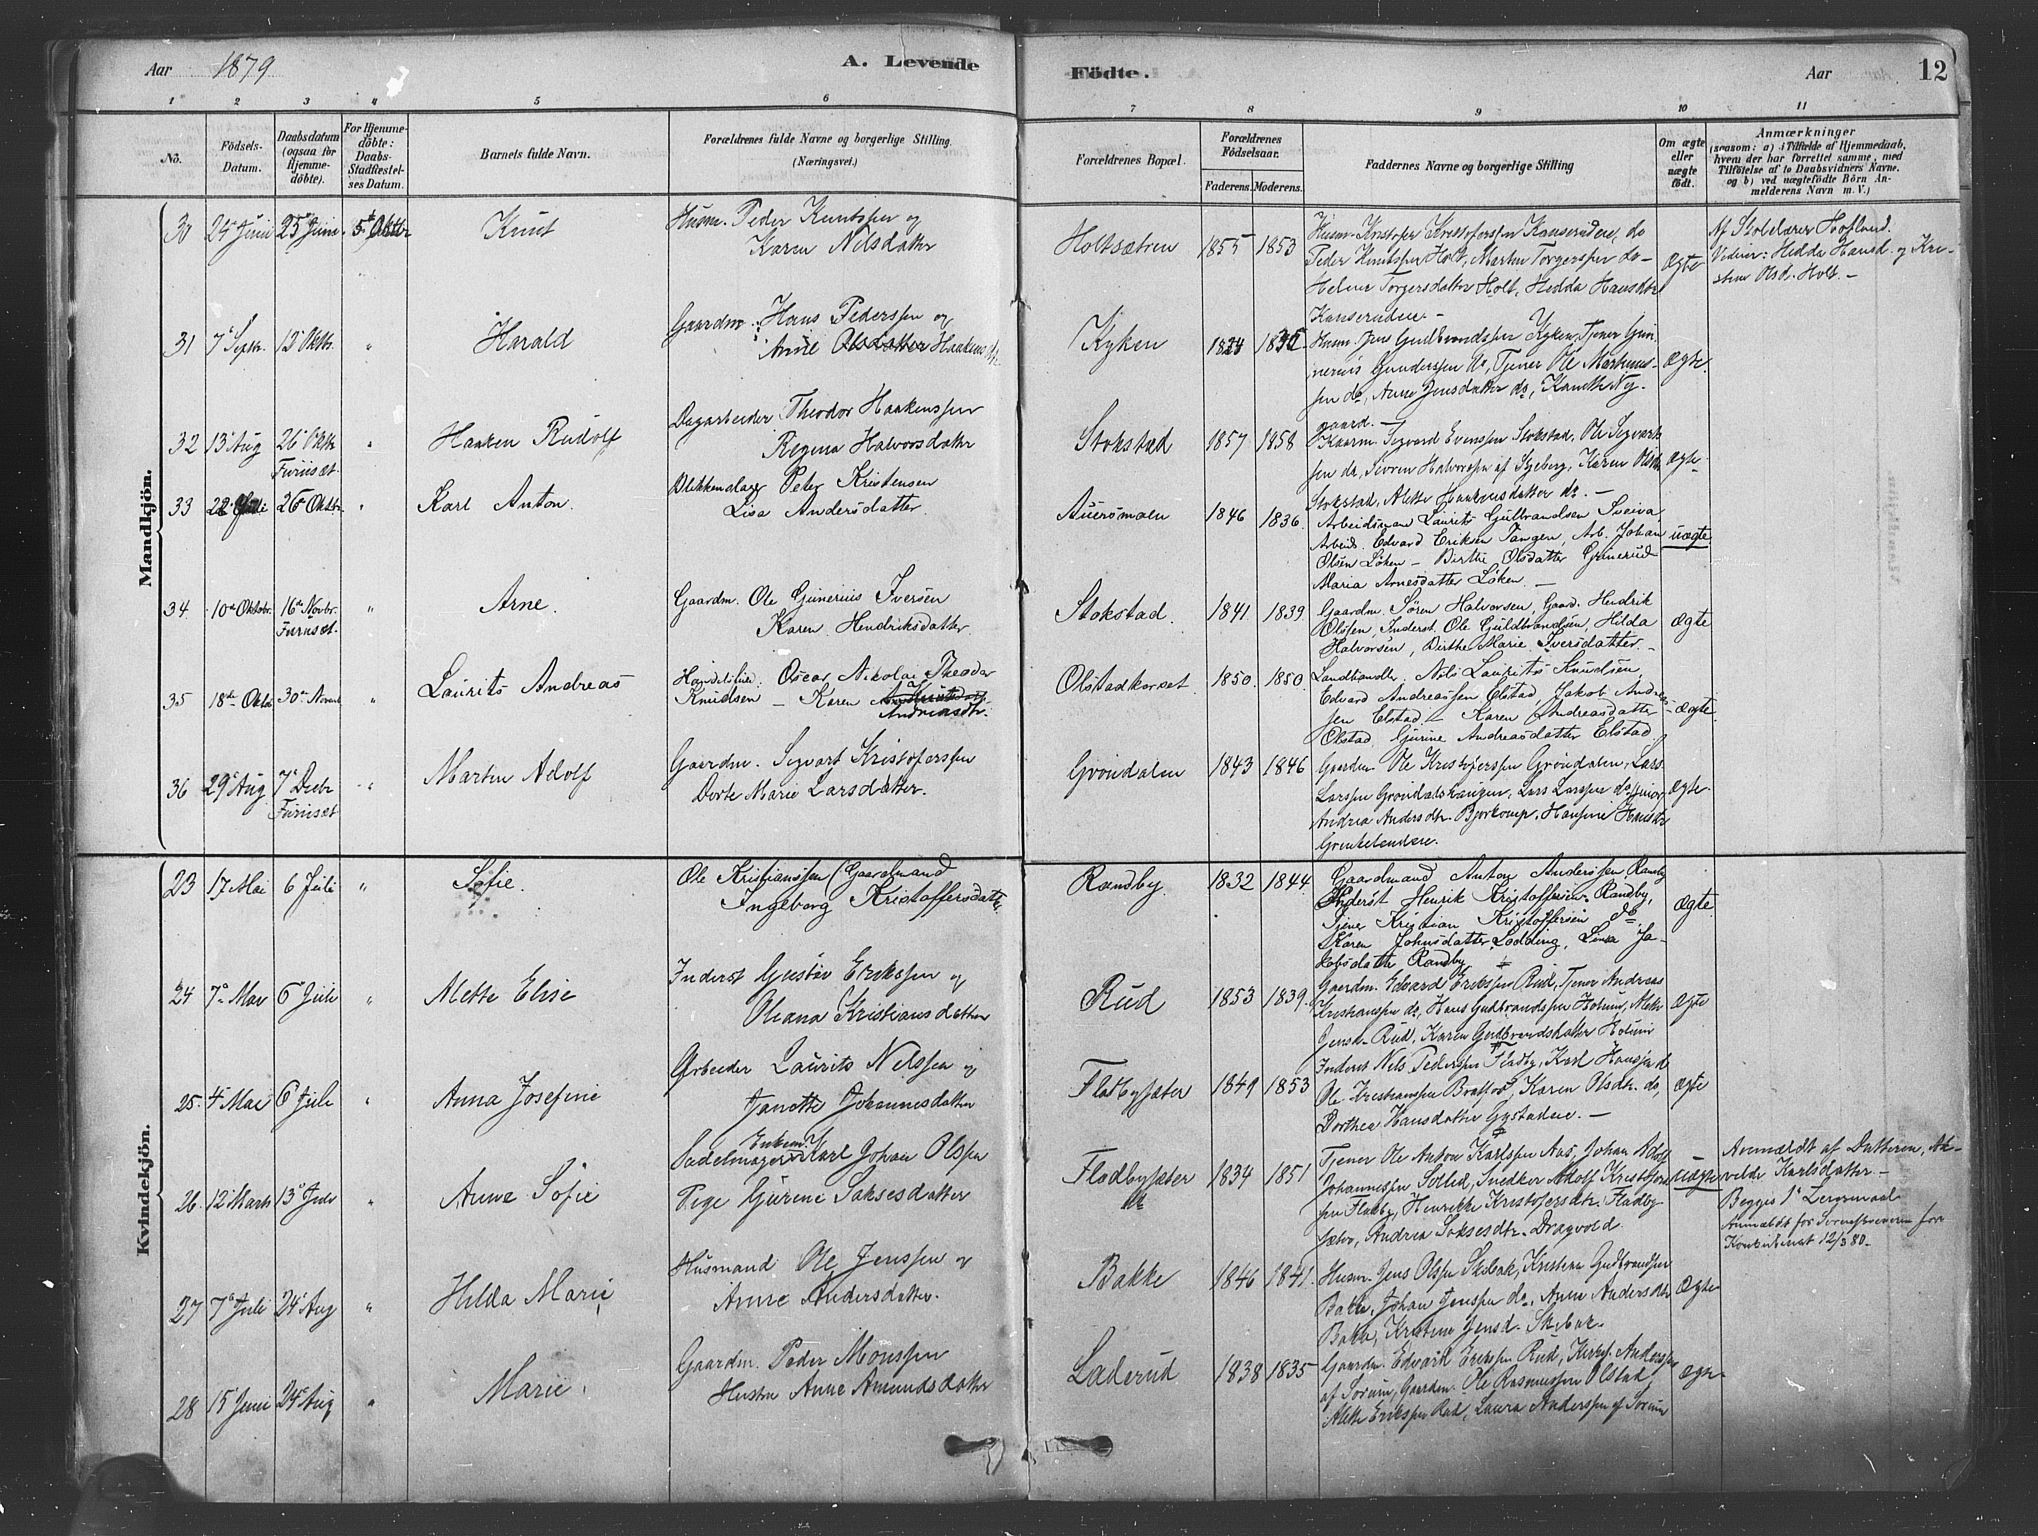 Aar 1879
A. Levende
Födte.
Aar
12
1 2 3 4 5 6 7 8 9 10 11
No.
Födsels-Datum.
Daabsdatum (ogsaa for Hjemme-döbte).
For Hjemme-döbte: Daabs-Stadfæstel-ses Datum.
Barnets fulde Navn.
Forældrenes fulde Navne og borgerlige Stilling. (Næringsvei.)
Forældrenes Bopæl.
Forældrenes Födselsaar.
Faderens. Moderens.
Faddernes Navne og borgerlige Stilling
Om ægte eller uægte födt.
Anmærkninger
(saasom: a) i Tilfælde af Hjemmedaab, hvem der har forrettet samme, med Tilföielse af to Daabsvidners Navne. og b) ved uægtefödte Börn An-melderens Navn m. V.)
Mandkjön.
30 24 Juni 25 Juni 5 Oktbr Knut
Husm. Peder Knutssen og
Karen Nilsdatter
Holtsætren 1855 1853
Husm. Kristofer Kristoferssen Kanserudeie, do
Peder Knutssen Holt, Martin Torgerssen do
Helene Torgersdatter Holt, Hedda Hansdtr
Kanserudeie. –
Ægte
Af Skolelærer Hofland.
Vidner: Hedda Hansd. og Kri-
stine Olsd. Holt. –
31 7 Septbr. 12 Oktbr. " Harald
Gaardm. Hans Pederssen og
Anne Olsdatter Haakensdtr.
Kyken 1824 1835
Husm. Jens Gudbrandssen Kyken, Tjener Gun-
nerius Gunderssen do, Tjener Ole Markus-
sen do, Anne Jensdatter do, Ny-
gaard. –
Ægte.
32 13 Aug 26 Oktbr Furuset. " Haaken Rudolf
Dagarbeider Theodor Haakenssen
Regina Halvorsdatter
Stokstad 1857 1858
Sigvard Evenssen Stokstad, Ole Sigvart-
sen do, Halvorssen af Skjeberg, Karen Olsdtr
Stokstad, Alette Haakensdatter do. –
Ægte.
33 26 Oktbr. " Karl Anton.
Blikkenslager Peter Kristensen
Lisa Andersdatter.
Auersmoen 1846 1836.
Arbeidsman Laurits Gulbrandsen Sveiva,
Arbeid. Edvard Eriksen Tangen, Arb. Johan
Olsen Løken – Birthe Olsdatter Grinerud
Maria Arnesdatter Løken. –
uægte
34. 10de Oktobr. 16de Novbr. Furuset. " Arne.
Gaardm. Ole Gunerius Iversen
Karen Hendriksdatter.
Stokstad. 1841. 1839.
Gaardm. Søren Halvorsen, Gaard. Hendrik
Olssen, Inderst. Ole Guldbrandsen, Hilda
Halvorsen, Birthe Marie Iversdatter. –
Ægte
35 18de Oktbr 30te Novemb " Laurits Andreas
Handelsbet. Oscar Nikolai Theodor
Knudsen – Karen Andreasdtr.
Olstadkorset. 1850. 1850.
Landhandler. Nils Laurits Knudsen,
Edvard Andreassen Elstad, Jakob Andreas-
sen Elstad – Karen Andreasdatter
Olstad, Gurine Andreasdatter Elstad.
Ægte.
36 29 Aug 7 Decbr Furuset " Martin Adolf
Gaardm. Sigvart Kristoferssen
Dorte Marie Larsdatter.
Grøndalen 1843 1846
Gaardm. Ole Kristoferssen Grøndalen, Lars
Larssen Grøndalshaugen, Lars Larssen do junior,
Andrea Andersdtr. Bjørkomp, Hansine Hansdtr
Grinkelendeie.
Ægte.
Kvindekjön.
23 17 Mai 6 Juli " Sofie.
Ole Kristianssen (Gaardmand
Ingeborg Kristoffersdatter.
Randby. 1832 1844.
Gaardmand Anton Anderssen Randby
Inderst Henrik Kristoffersen Randby,
Tjener Kristian Kristoffersen do
Karen Johnsdatter Lodding, Lina Ja-
kobsdatter Randby
Ægte.
24 7 Mai 6 Juli " Mette Elise
Inderst Gustav Erikssen og
Oleana Kristiansdatter
Rud 1853 1839.
Gaardm. Edvard Erikssen Rud, Tjener Andreas
Kristianssen do, Hans Gudbrandssen Holum, Mette
Jensd. Rud, Karen Gudbrandsdatter Holum
Ægte
25. 4 Mai 6 Juli " Anna Josefine
Arbeider Laurits Nilssen og
Janette Johannesdatter
Fladbysæter 1849 1853
Inderst Nils Pederssen Fladby, Karl Hanssen do
Ole Kristianssen Braatfos, Karen Olsdtr. do,
Dorthea Hansdatter Gystadeie. –
Ægte
26. 12 Marts 13 Juli " Anne Sofie
Sadelmager Enkem. Karl Johan Olssen
Pige Gurine Saksesdatter
Fladbysæter
do 1834 1851
Tjener Ole Anton Karlssen Aas, Johan Adolf
Johannessen Sollid, Snedker Adolf Kristofer-
sen Fladby, Henrikke Kristofersdtr. Fladby-
sætr, Andrea Saksesdtr. Dragvold.
uægte
Anmældt af Datteren,
Karlsdatter –
Begges 1ste Leiermaal
Anmældt for for
Konkubinat 12/3 80.
27 7 Juli 24 Aug " Hilda Marie
Husmand Ole Jenssen og
Anne Andersdatter.
Bakke 1846 1841.
Husm. Jens Olssen Skibak, Kristian Gudbrandssen
Bakke, Johan Jenssen do, Anne Andersdtr
Bakke, Kristine Jensd. Skibak.
Ægte
28 15 Juni 24 Aug " Marie.
Gaardm. Peder Monssen
Hustru Anne Amundsdatter
Laderud 1838 1835
Gaardm. Edvard Erikssen Rud, Anderssen
af Sørum, Gaardm. Ole Rasmussen Olstad,
Alette Erikssen Rud, Laura Anderssen af Sørum
Ægte